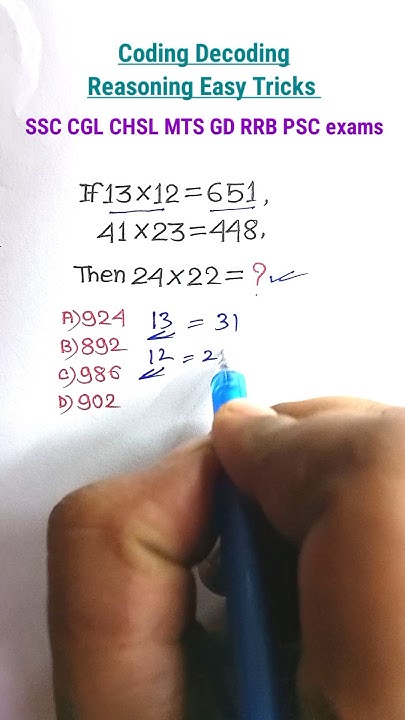 Coding Decoding
Reasoning Easy Tricks
SSC CGL CHSL MTS GD RRB PSC exams
If 13×12=651,
41×23=448,
Then 24×22=?
A) 924
13 = 31
B) 892
12 = 2
C) 986
D) 902